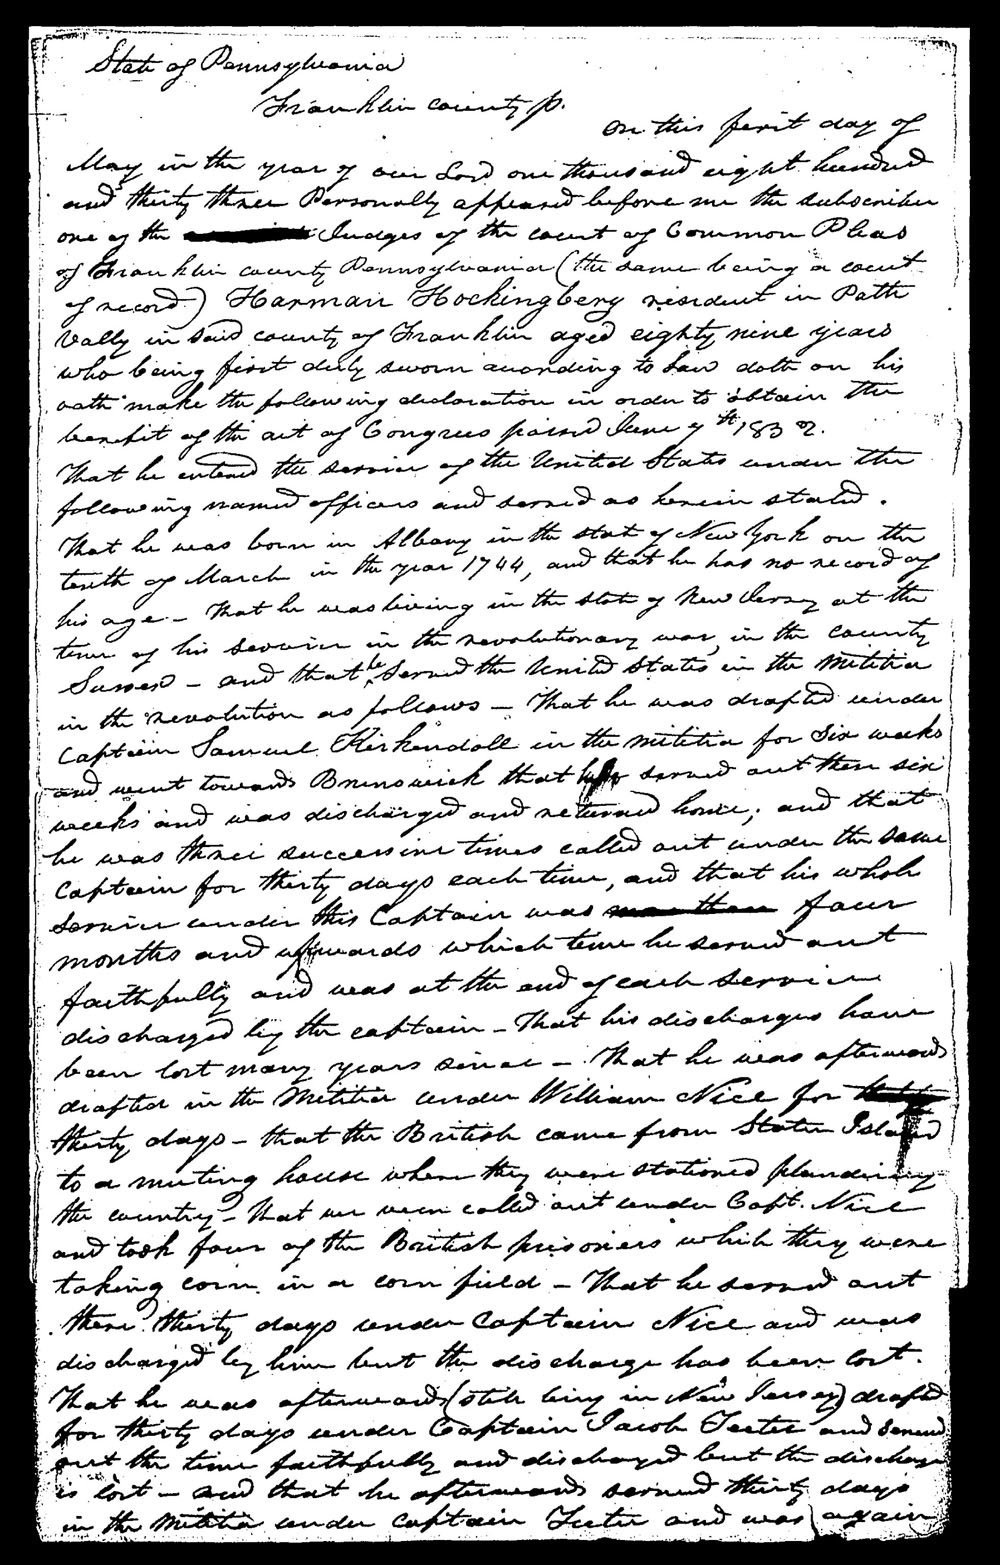 State of Pennsylvania
Franklin county ss.
On this first day of
May in the year of our Lord one thousand eight hundred
and thirty three Personally appeared before me the subscriber
one of the Judges of the court of Common Pleas
of Franklin county Pennsylvania (the same being a court
of record) Harman Hockingbery resident in Path
Vally in said county of Franklin aged eighty nine years
who being first duly sworn according to Law doth on his
oath make the following declaration in order to obtain the
benefit of the act of Congress passed June 7th 1832.
That he entered the service of the United States under the
following named officers and served as herein stated.
That he was born in Albany in the state of New York on the
tenth of March in the year 1744, and that he has no record of
his age - That he was living in the state of New Jersey at the
time of his service in the revolutionary war, in the county
Sussex - and that he served the United States in the Militia
in the revolution as follows - That he was drafted under
Captain Samuel Kirkendoll in the militia for Six weeks
and went towards Brunswick that he served out then six
weeks and was discharged and returned home; and that
he was three successive times called out under the same
Captain for thirty days each time, and that his whole
service under this Captain was four
months and upwards which time he served out
faithfully and was at the end of each service
discharged by the captain - That his discharges have
been lost many years since - That he was afterwards
drafted in the Militia under William Nice for
thirty days - that the British came from Staten Island
to a meeting house where they were stationed plundering
the country - that we were called out under Capt. Nice
and took four of the British prisoners while they were
taking corn in a corn field - That he served out
these thirty days under Captain Nice and was
discharged by him but the discharge has been lost.
That he was afterwards (still living in New Jersey) drafted
for thirty days under Captain Jacob Teeter and served
out the time faithfully and discharged but the discharge
is lost - and that he afterwards served thirty days
in the Militia under Captain Teeter and was again